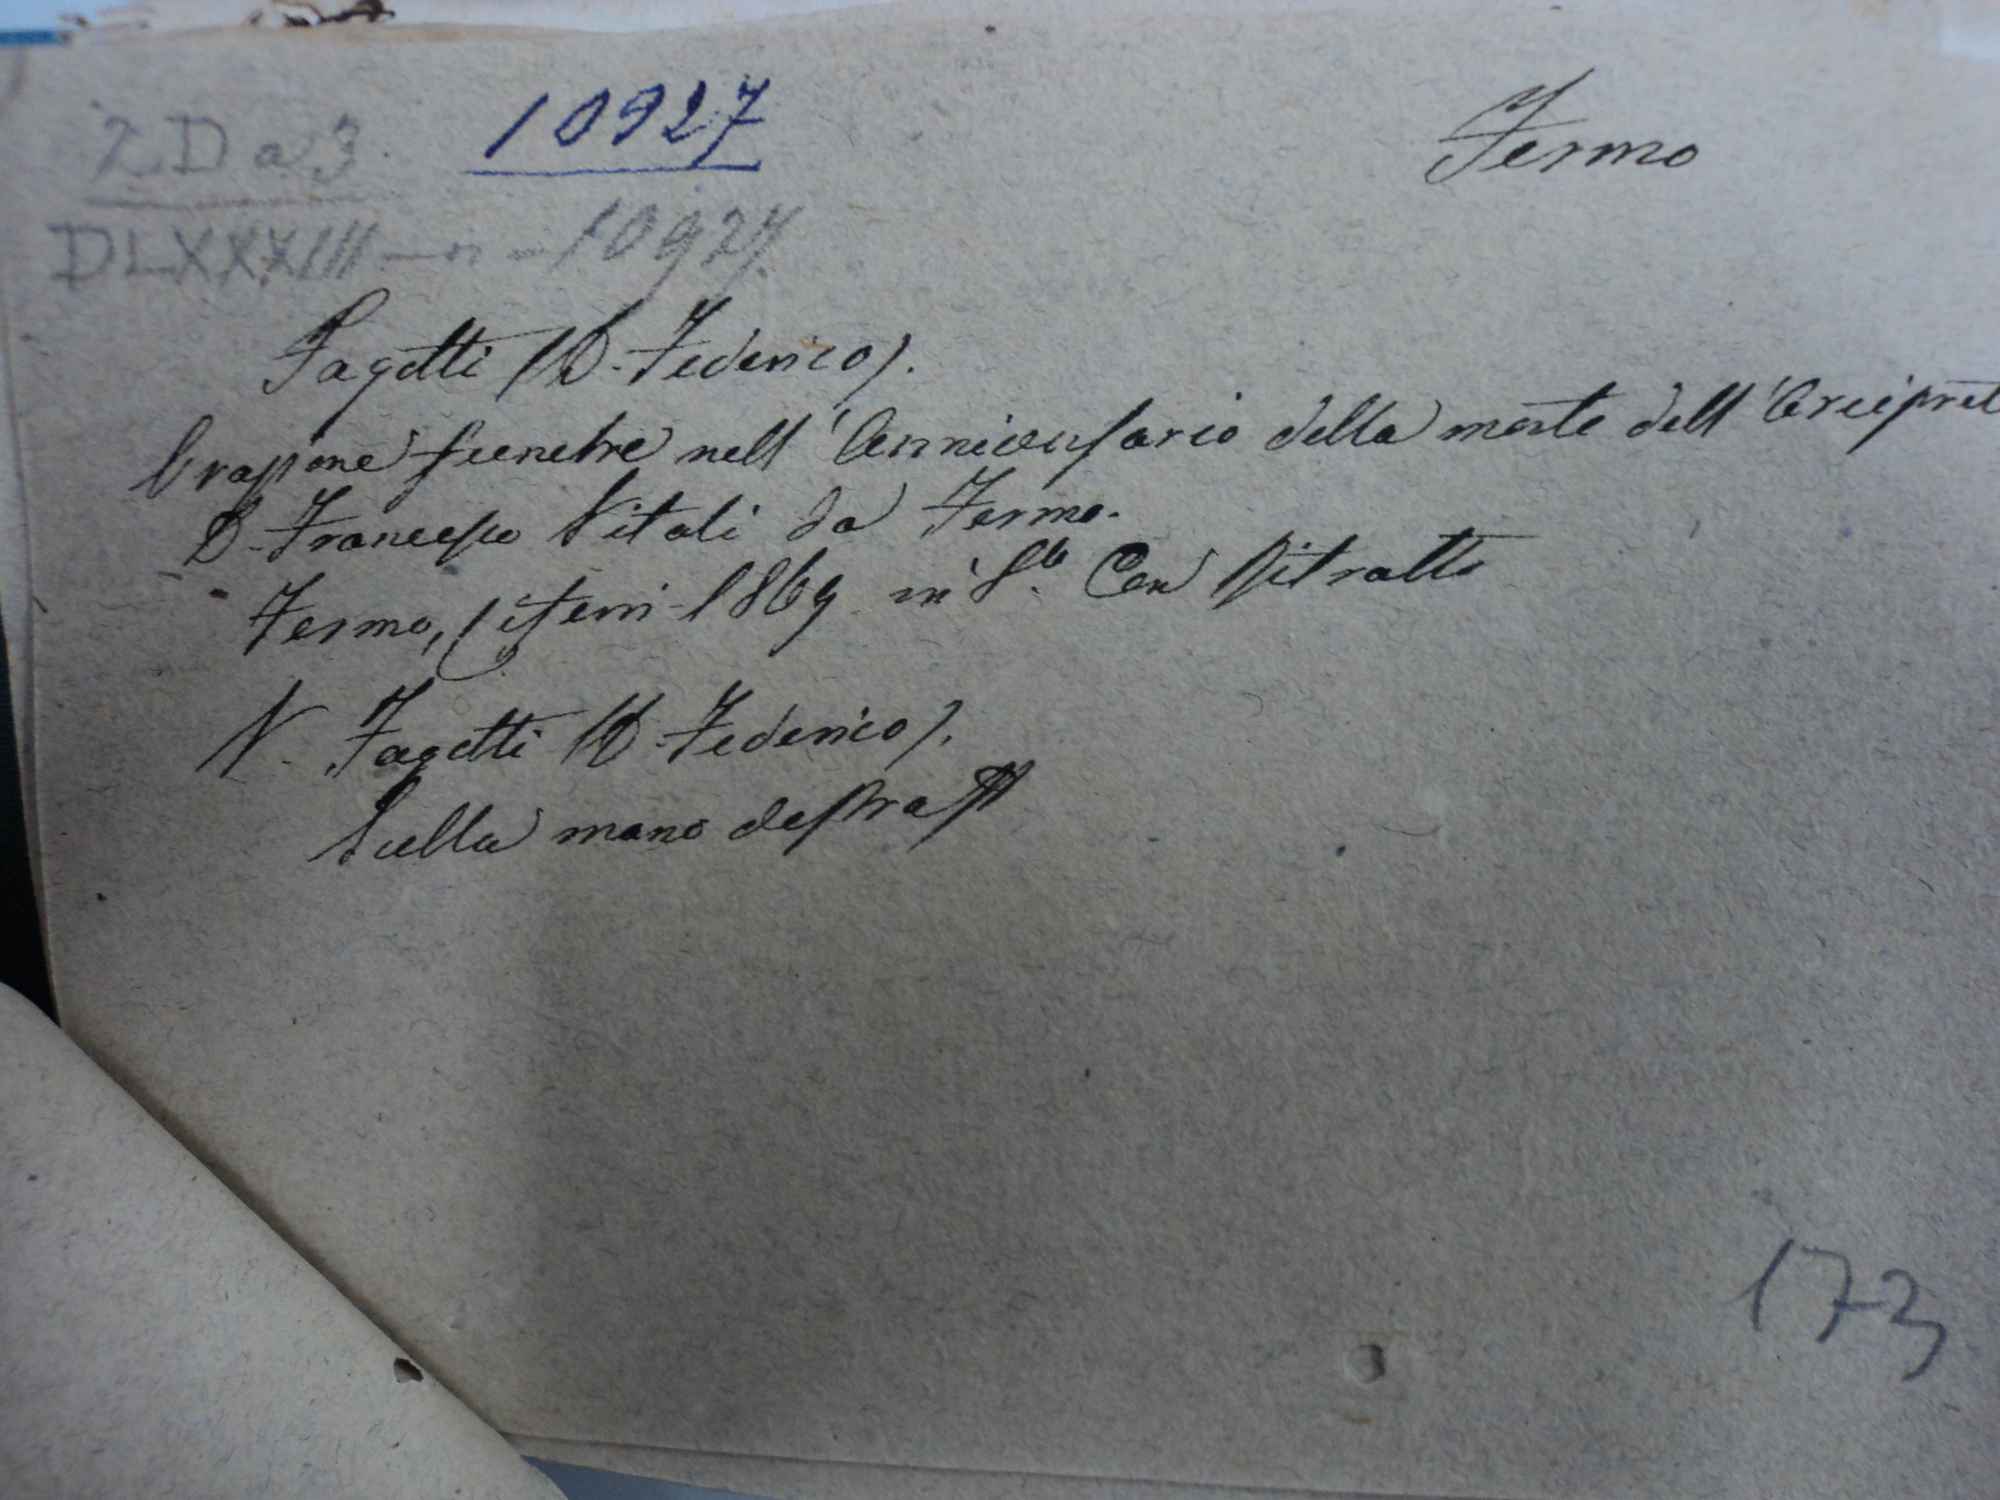 2 D a 3. 10927 Fermo
DLXXXIII — n — 10927.
Fagotti (D. Federico).
Orazione funebre nell'Anniversario della morte dell'Arcipret
D. Francesco Vitali da Fermo.
Fermo, 1869 in 8.º Con Ritratto
V. Fagotti (D. Federico).
Sulla mano destra
173